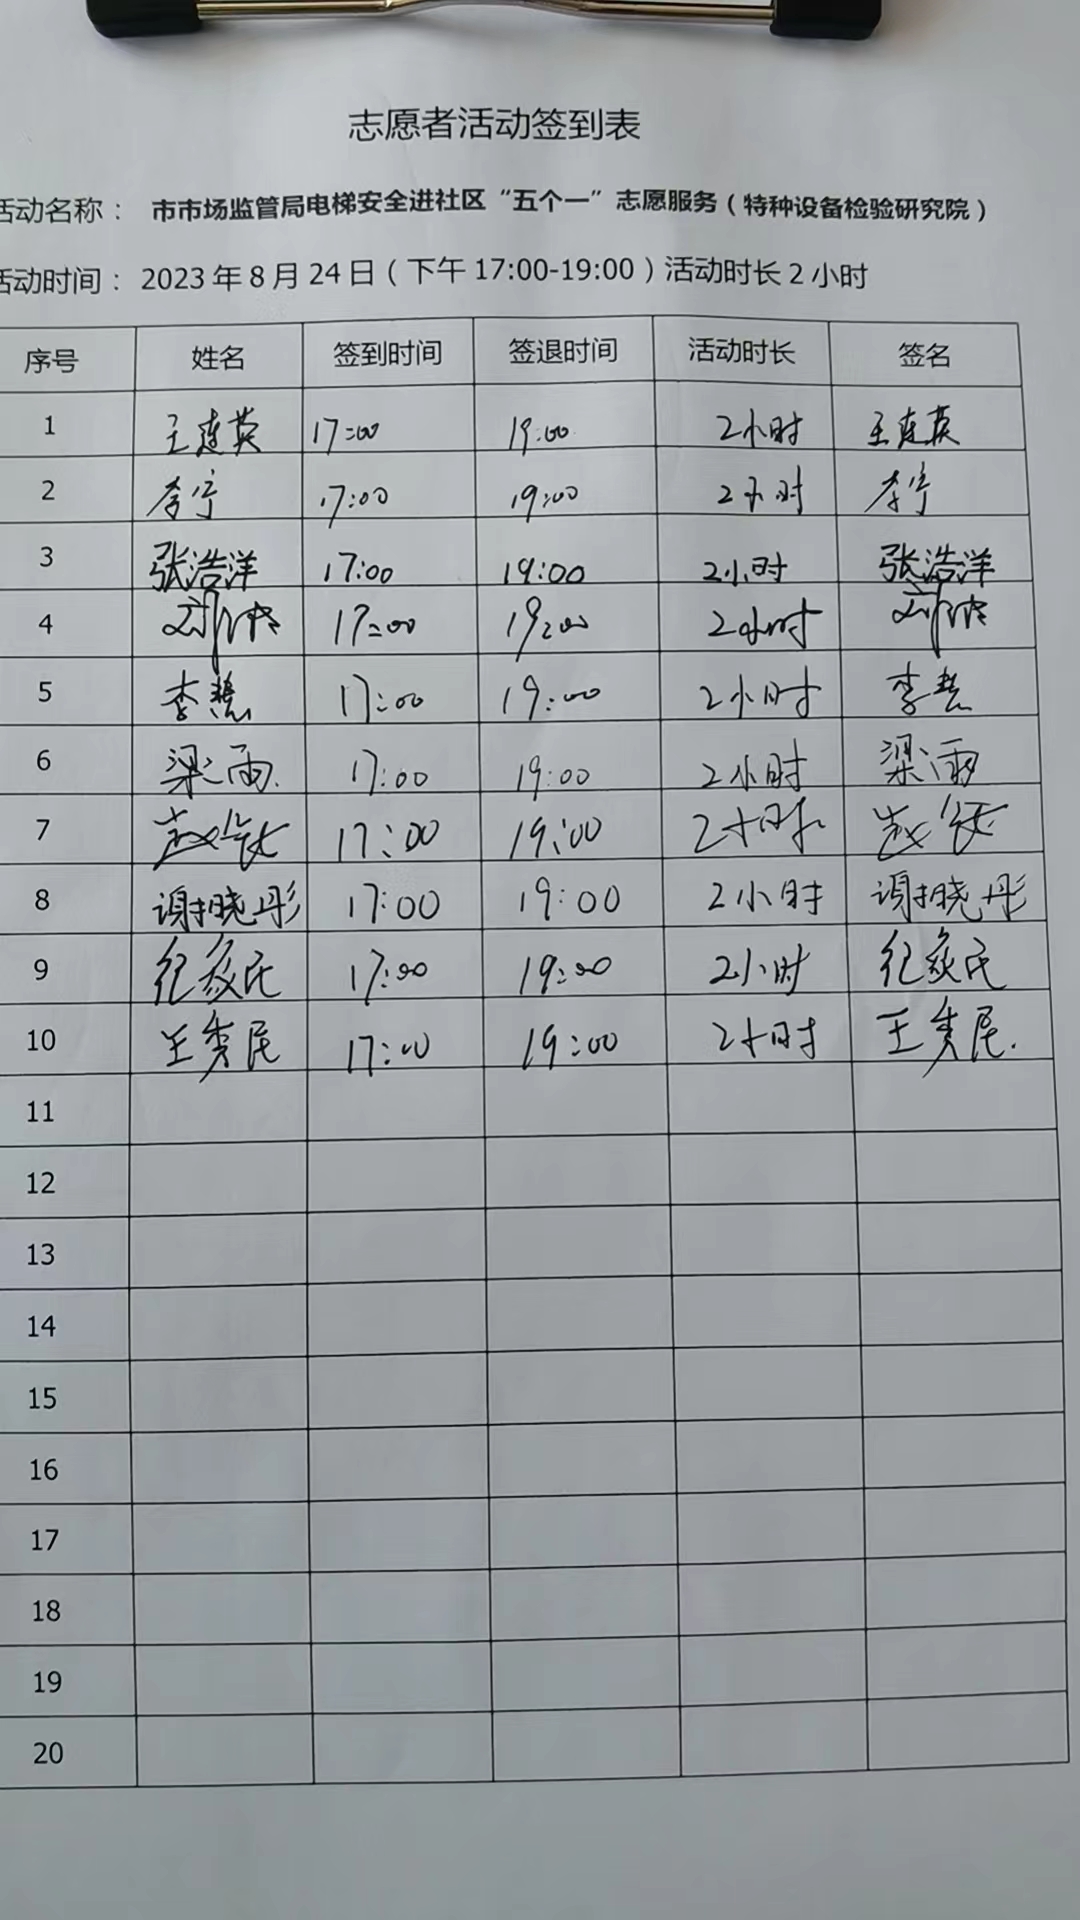 志愿者活动签到表
活动名称： 市市场监管局电梯安全进社区“五个一”志愿服务（特种设备检验研究院）
活动时间： 2023年8月24日（下午17:00-19:00）活动时长2小时
序号 姓名 签到时间 签退时间 活动时长 签名
1 王连英 17:00 19:00 2小时 王连英
2 李宁 17:00 19:00 2小时 李宁
3 张浩洋 17:00 19:00 2小时 张浩洋
4 17:00 19:00 2小时
5 李慧 17:00 19:00 2小时 李慧
6 梁雨 17:00 19:00 2小时 梁雨
7 赵 17:00 19:00 2小时 赵
8 谢晓彤 17:00 19:00 2小时 谢晓彤
9 纪 民 17:00 19:00 2小时 纪 民
10 王秀民 17:00 19:00 2小时 王秀民
11
12
13
14
15
16
17
18
19
20